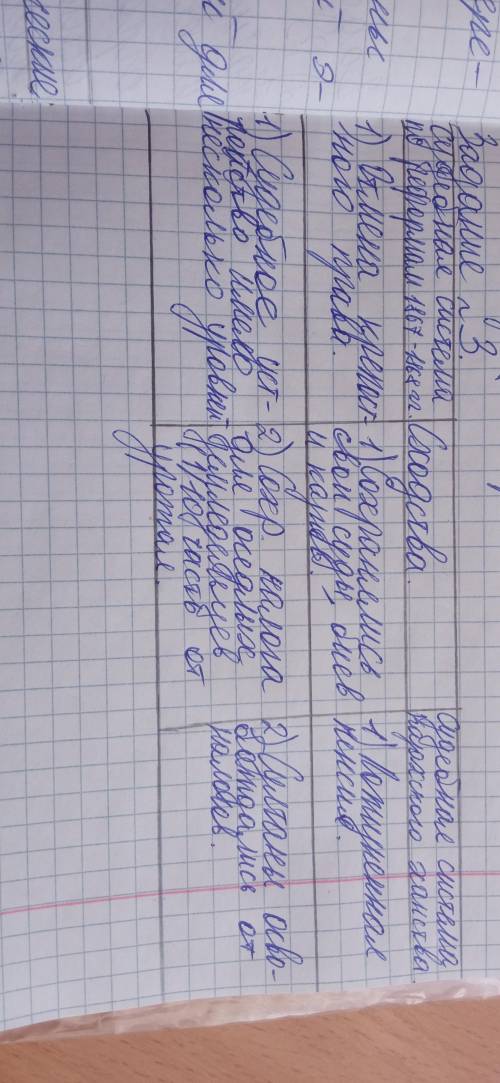 Задание №3.
Судебная система
по реформам 1867-1868 гг.
Сходства
судебная система
казахского ханства
1) Отмена крепост-
ного права.
1) Сохранялись
свои суды, биев
и казыв.
1) Пожизненная
пенсия.
1) Судебное уст-
ройство имело
несколько уровней
2) Сохр. налога
для оседлых
земледельцев
1/10 часть от
урожая.
2) Султаны осво-
бождались от
налогов.